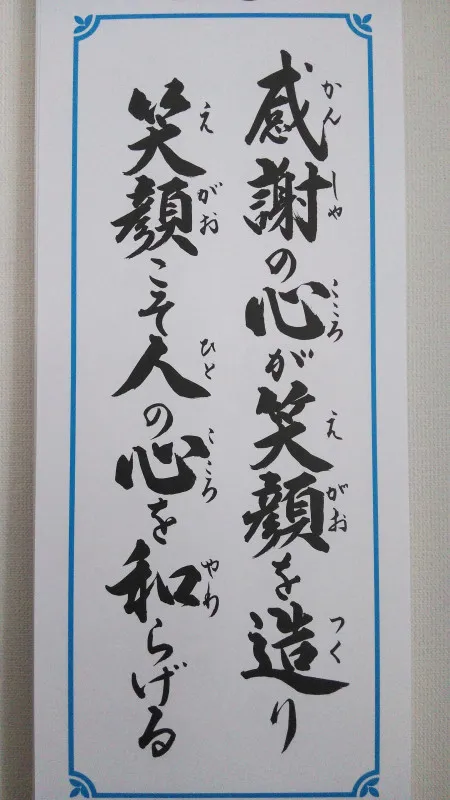 感謝の心が笑顔を造り
笑顔こそ人の心を和らげる
かんしゃ
こころ
えがお
つく
えがお
ひと
こころ
やわ